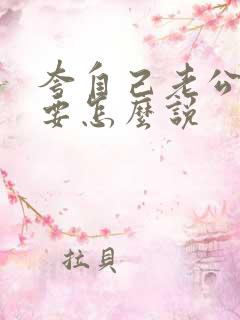 夸自己老公
要怎麼說
拉貝